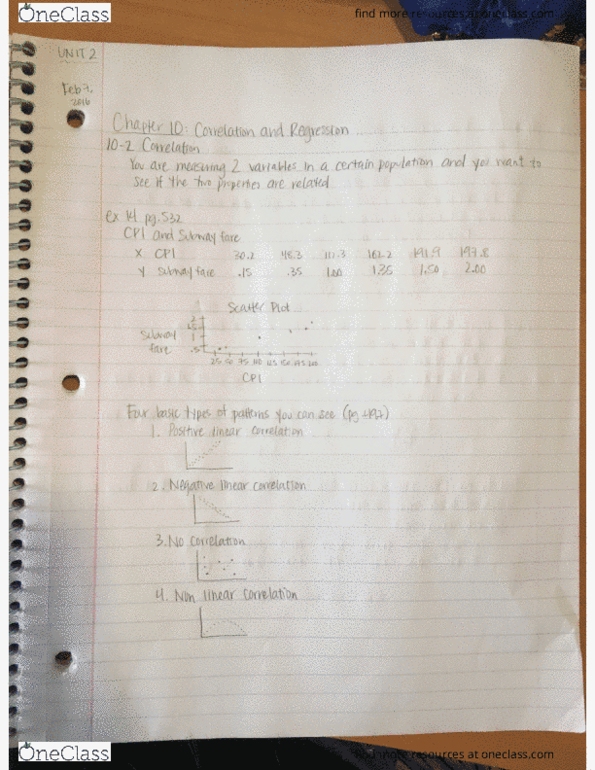 OneClass
find more resources at oneclass.com
UNIT 2
Feb 7,
2016
Chapter 10: Correlation and Regression
10-2 Correlation
You are measuring 2 variables in a certain population and you want to
see if the two properties are related
ex pg. 532
CPI and Subway fare
X CPI 30.2 48.3 112.3 162.2 191.9 197.8
Y Subway fare .15 .35 1.00 1.35 1.50 2.00
Scatter Plot
2
1
.5
Subway
fare
25 50 75 100 125 150 175 200
CPI
Four basic types of patterns you can see (pg 497)
1. Positive linear correlation
2. Negative linear correlation
3. No correlation
4. Non linear correlation
OneClass
find more resources at oneclass.com